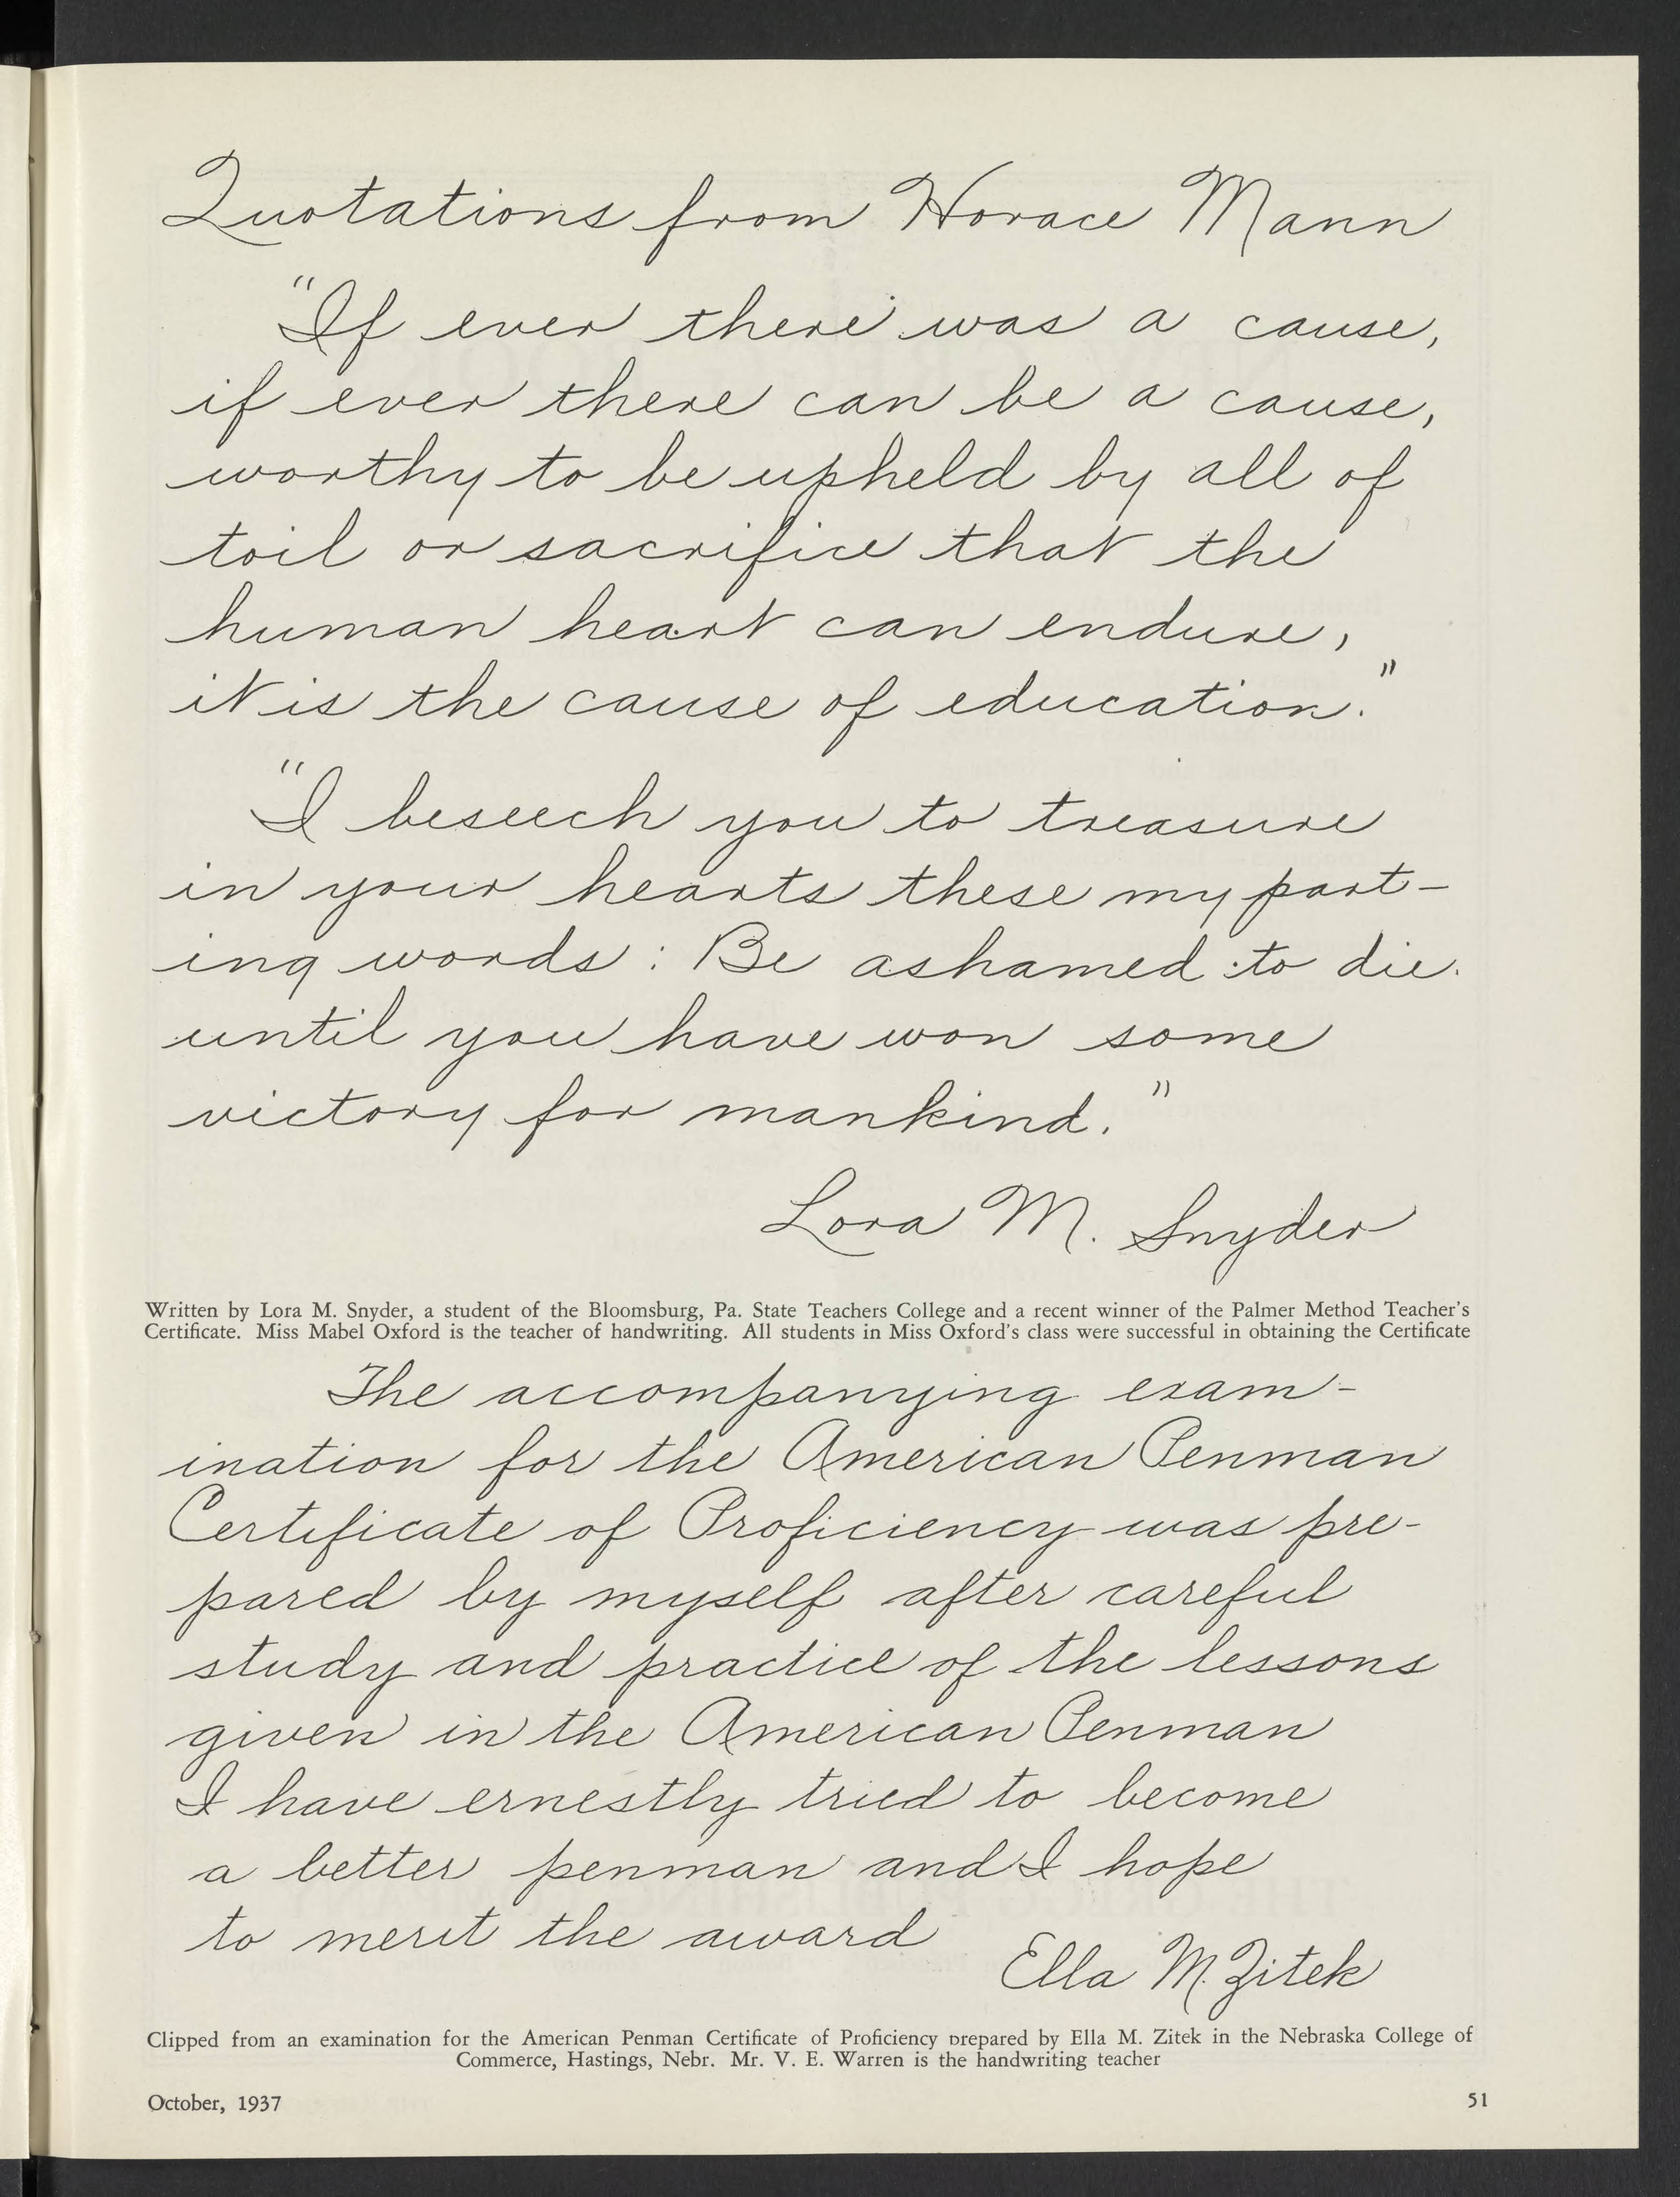 Quotations from Horace Mann
"If ever there was a cause,
if ever there can be a cause,
worthy to be upheld by all of
toil or sacrifice that the
human heart can endure,
it is the cause of education."
"I beseech you to treasure
in your hearts these my part-
ing words: Be ashamed to die
until you have won some
victory for mankind."
Lora M. Snyder
Written by Lora M. Snyder, a student of the Bloomsburg, Pa. State Teachers College and a recent winner of the Palmer Method Teacher's
Certificate. Miss Mabel Oxford is the teacher of handwriting. All students in Miss Oxford's class were successful in obtaining the Certificate
The accompanying exam-
ination for the American Penman
Certificate of Proficiency was pre-
pared by myself after careful
study and practice of the lessons
given in the American Penman
I have ernestly tried to become
a better penman and I hope
to merit the award
Ella M. Zitek
Clipped from an examination for the American Penman Certificate of Proficiency prepared by Ella M. Zitek in the Nebraska College of
Commerce, Hastings, Nebr. Mr. V. E. Warren is the handwriting teacher
October, 1937 51